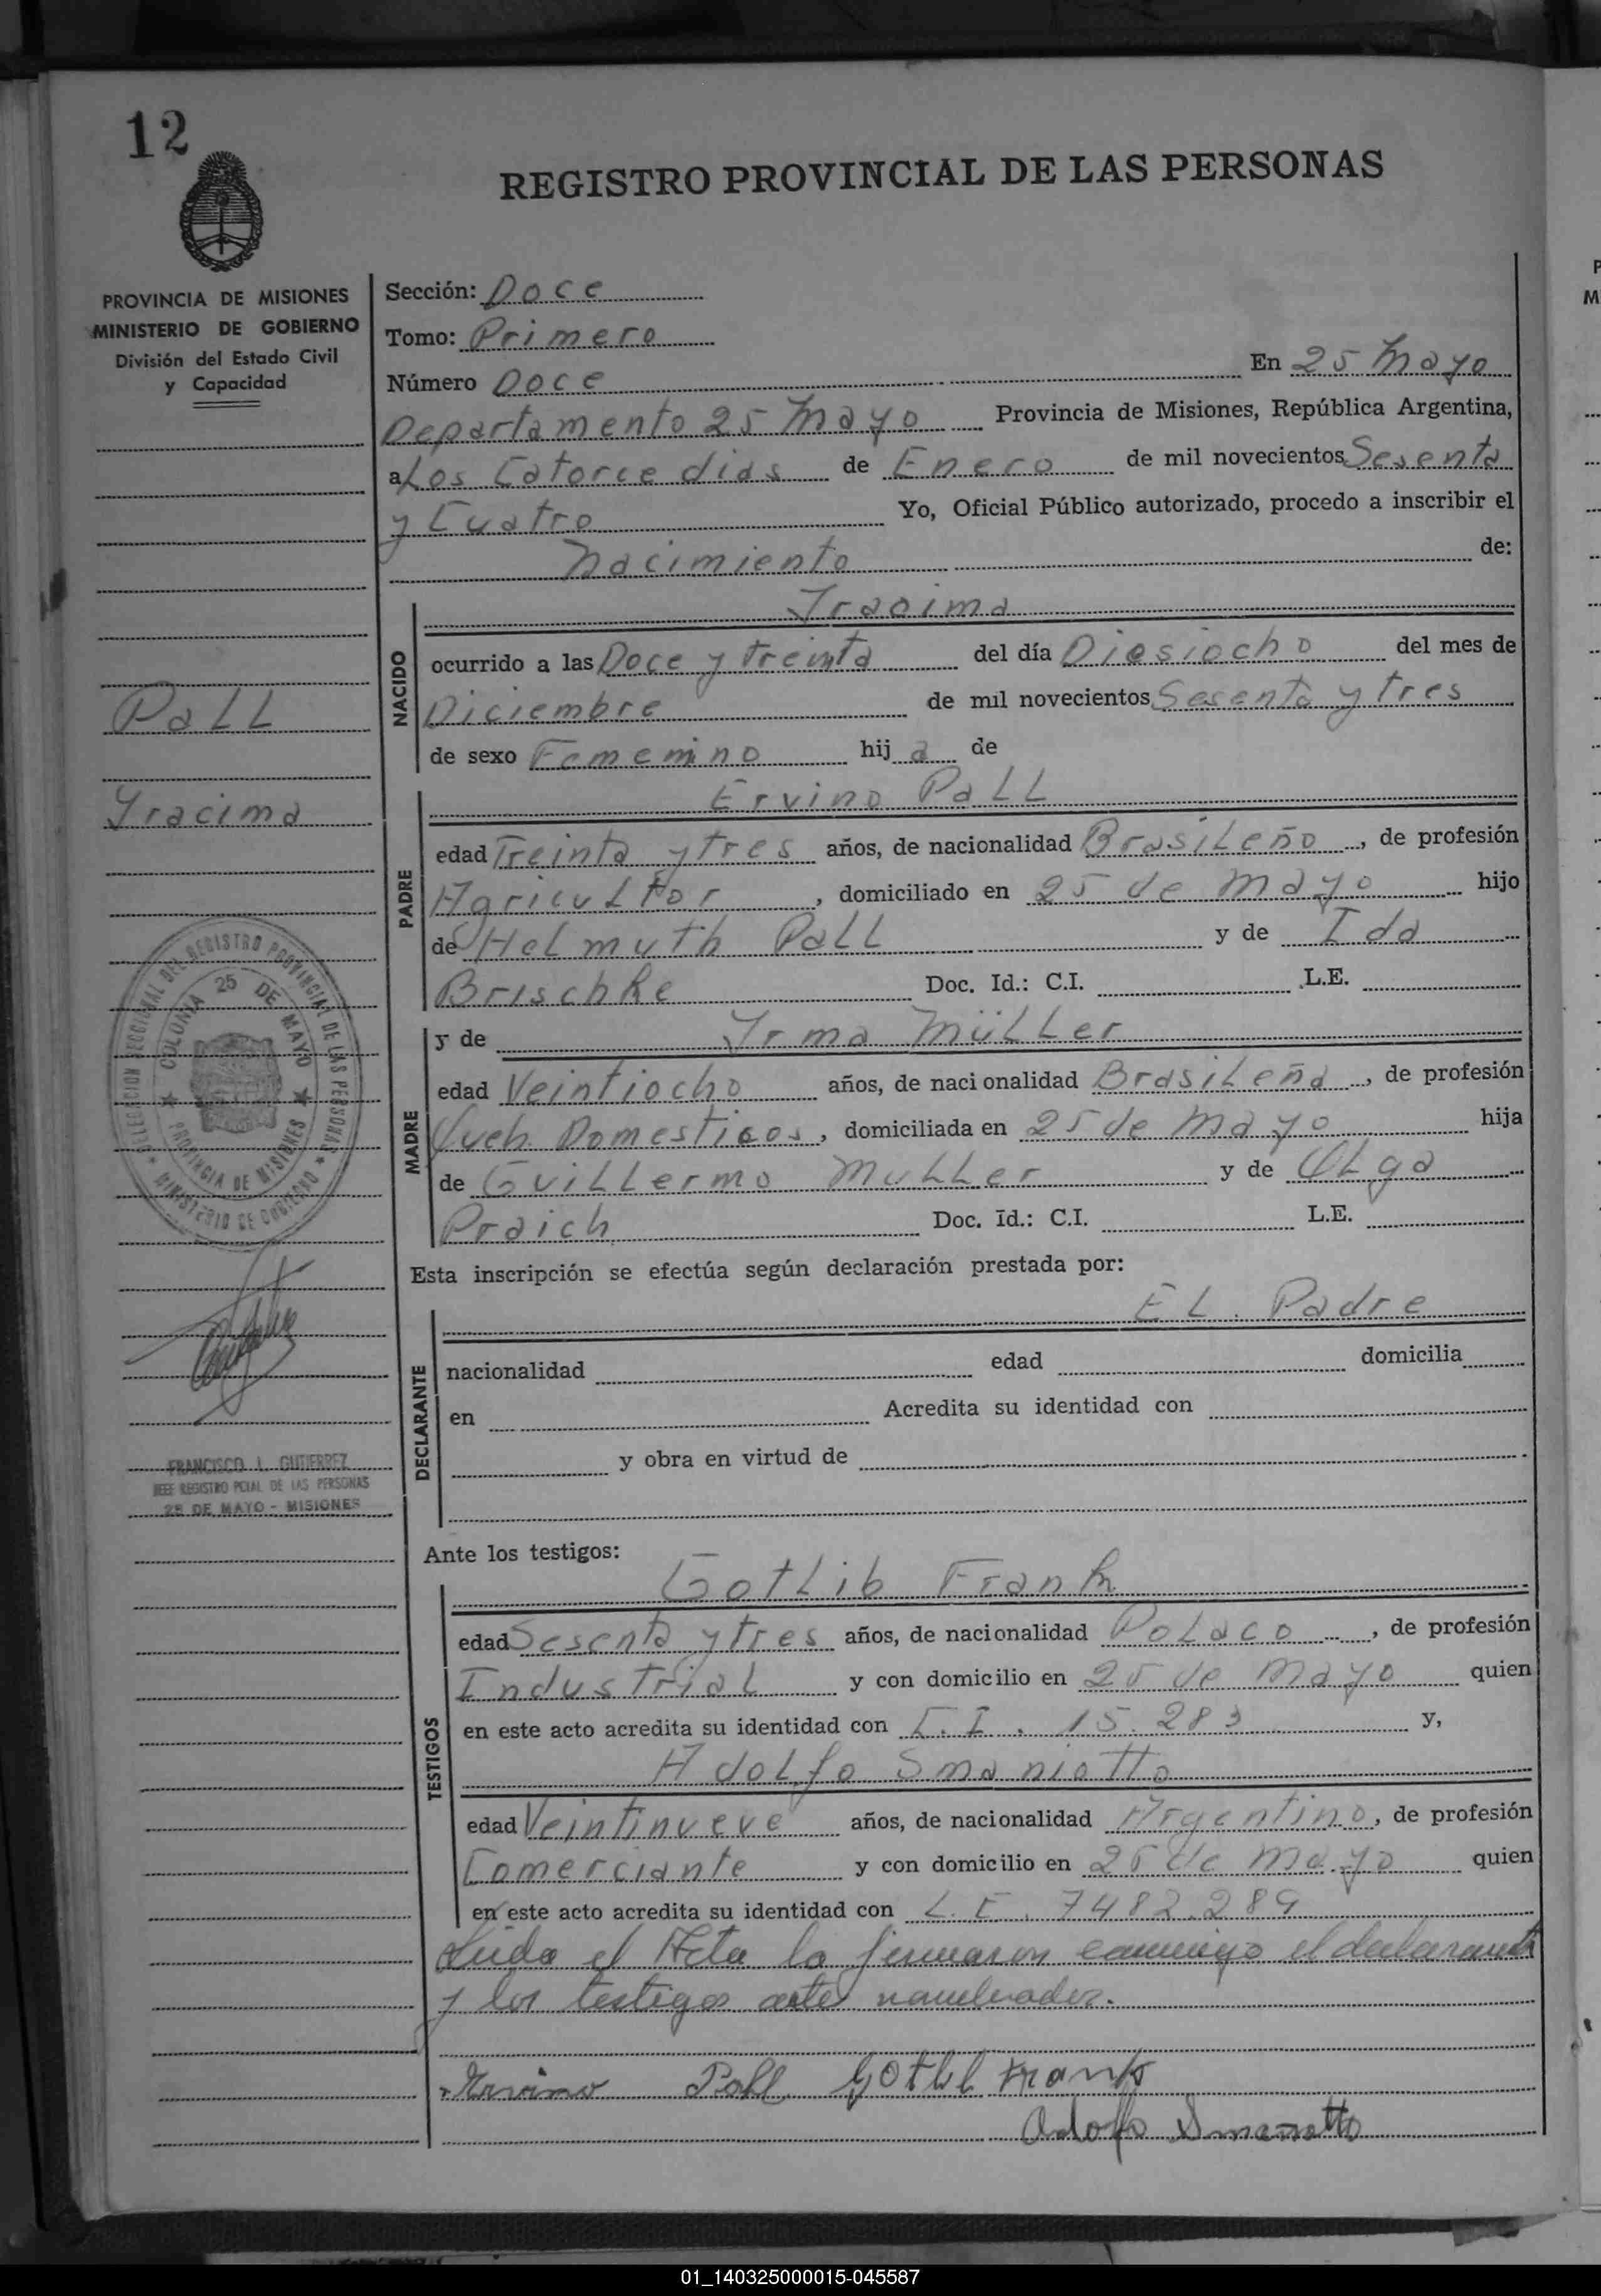 12
REGISTRO PROVINCIAL DE LAS PERSONAS
PROVINCIA DE MISIONES
MINISTERIO DE GOBIERNO
División del Estado Civil
y Capacidad
Sección: Doce
Tomo: Primero
Número Doce En 25 Mayo
Departamento 25 Mayo Provincia de Misiones, República Argentina,
a Los Catorce dias de Enero de mil novecientos Sesenta
y Cuatro Yo, Oficial Público autorizado, procedo a inscribir el
Nacimiento de:
NACIDO
Yracima
ocurrido a las Doce y treinta del día Diesiocho del mes de
Diciembre de mil novecientos Sesenta y tres
de sexo Femenino hij a de
Pall
Yracima
PADRE
Ervino Pall
edad Treinta y tres años, de nacionalidad Brasileño, de profesión
Agricultor, domiciliado en 25 de Mayo hijo
de Helmuth Pall y de Ida
Brischke Doc. Id.: C.I. L.E.
MADRE
y de Yrma Müller
edad Veintiocho años, de nacionalidad Brasileña, de profesión
Queh. Domesticos, domiciliada en 25 de Mayo hija
de Guillermo Muller y de Olga
Praich Doc. Id.: C.I. L.E.
DELEGACION SECCIONAL DEL REGISTRO PROVINCIAL DE LAS PERSONAS
MINISTERIO DE GOBIERNO
COLONIA 25 DE MAYO
PROVINCIA DE MISIONES
Esta inscripción se efectúa según declaración prestada por:
DECLARANTE
El Padre
nacionalidad edad domicilia
en Acredita su identidad con
y obra en virtud de
FRANCISCO L. GUTIERREZ
JEFE REGISTRO PCIAL DE LAS PERSONAS
25 DE MAYO - MISIONES
Ante los testigos:
TESTIGOS
Gotlib Frank
edad Sesenta y tres años, de nacionalidad Polaco, de profesión
Industrial y con domicilio en 25 de Mayo quien
en este acto acredita su identidad con C.I. 15.283 y,
Adolfo Smaniotto
edad Veintinueve años, de nacionalidad Argentino, de profesión
Comerciante y con domicilio en 25 de Mayo quien
en este acto acredita su identidad con L.E. 7482.289
Leida el Acta la firmaron conmigo el declarante
y los testigos antes nombrados.
Ervino Pall Gotlib Frank
Adolfo Smaniotto
01_140325000015-045587